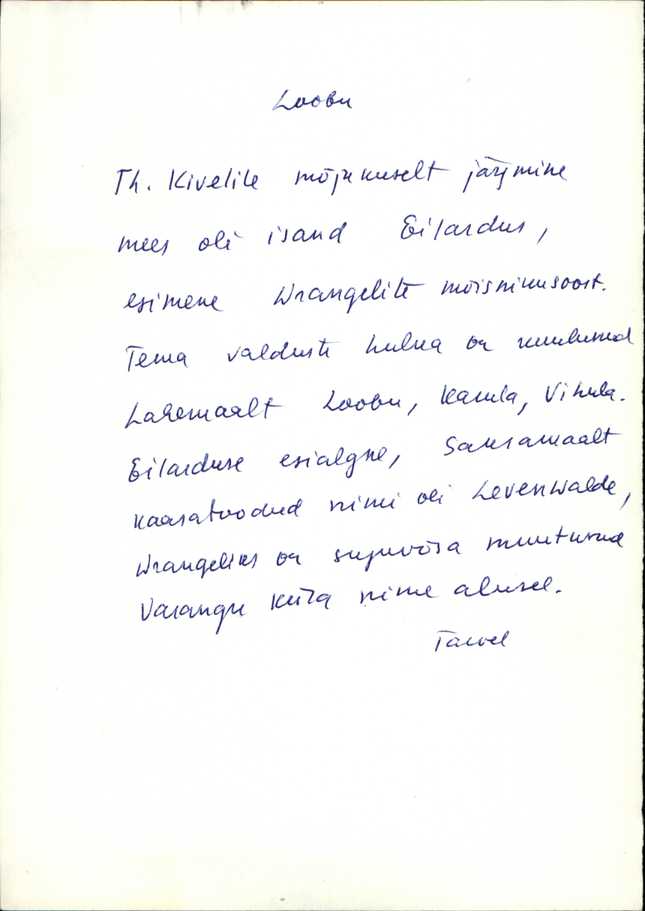 Loobu
Th. Kivelile mõjukuselt järgmine
mees oli isand Eilardus,
esimene Wrangelite mõisnikusoost.
Tema valduste hulka on kuulunud
Lahemaalt Loobu, Karula, Vihula.
Eilarduse esialgne, Saksamaalt
kaasatoodud nimi oli Levenwalde,
Wrangeliks on suguvõsa muutunud
Varangu küla nime alusel.
Tarvel